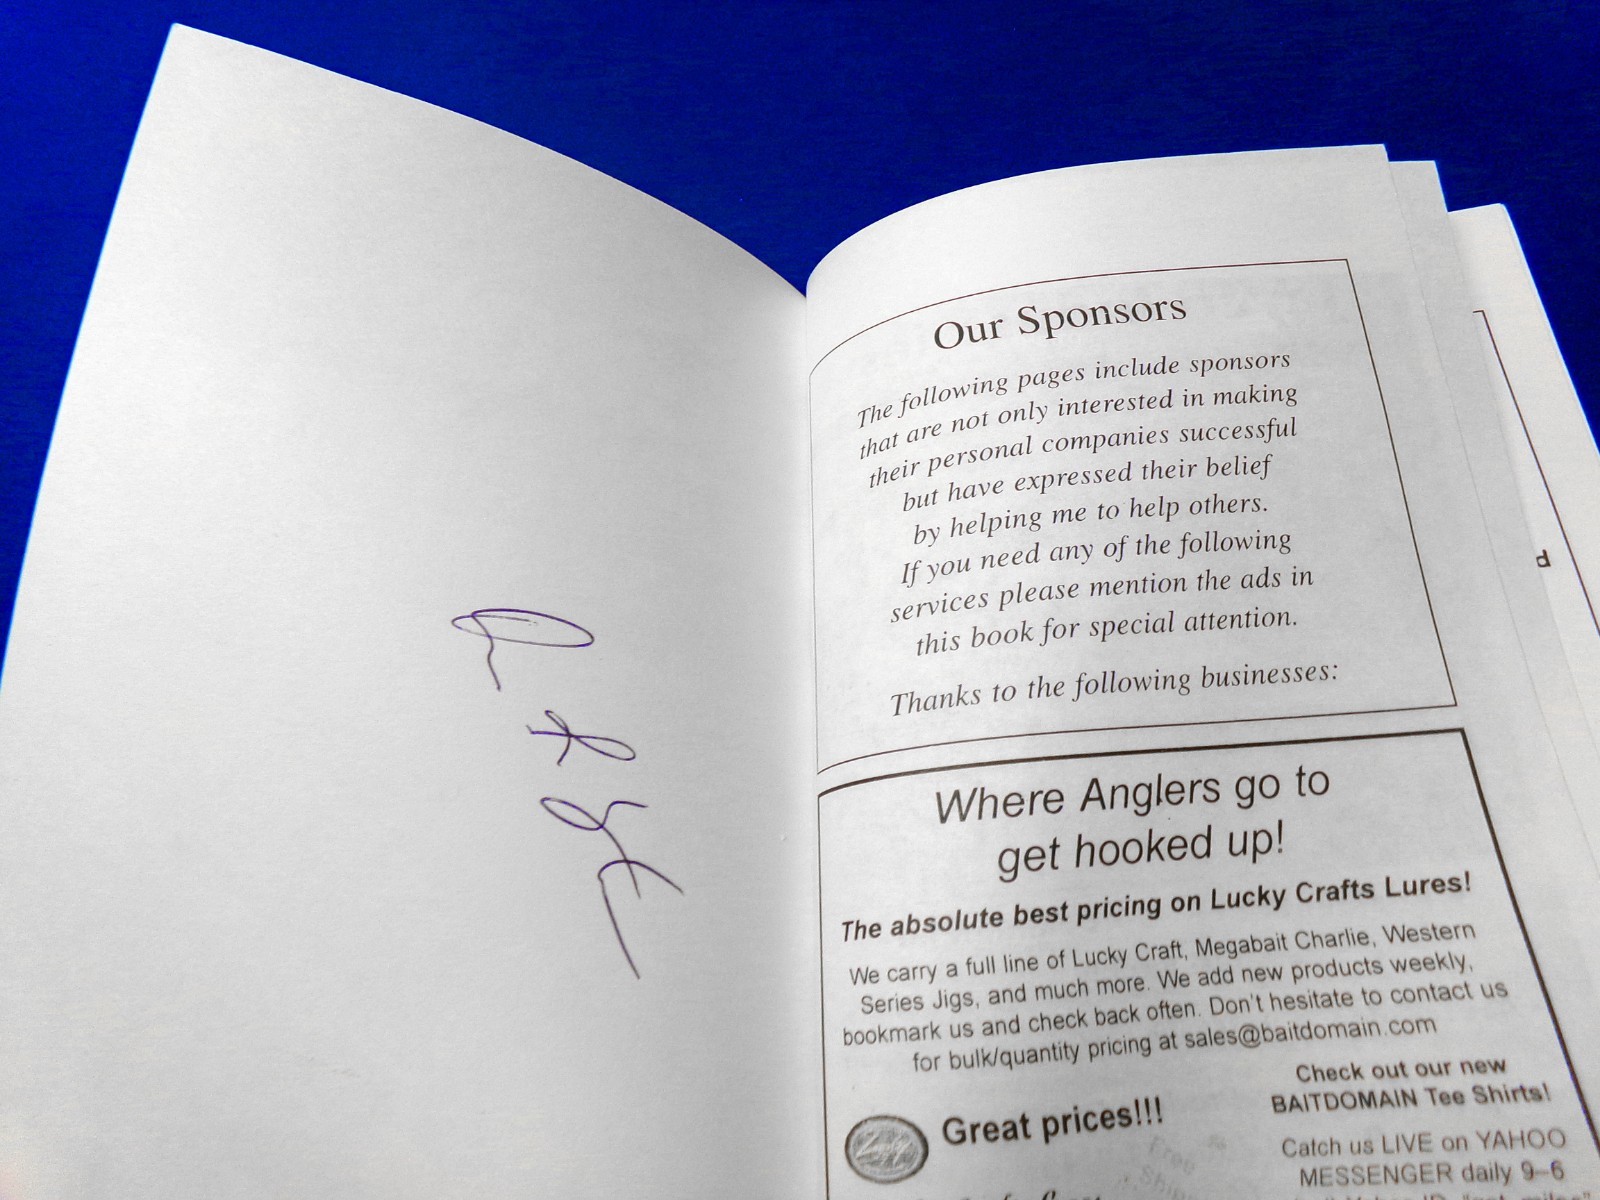 Our Sponsors
The following pages include sponsors
that are not only interested in making
their personal companies successful
but have expressed their belief
by helping me to help others.
If you need any of the following
services please mention the ads in
this book for special attention.
Thanks to the following businesses:
Where Anglers go to
get hooked up!
The absolute best pricing on Lucky Crafts Lures!
We carry a full line of Lucky Craft, Megabait Charlie, Western
Series Jigs, and much more. We add new products weekly,
bookmark us and check back often. Don't hesitate to contact us
for bulk/quantity pricing at sales@baitdomain.com
Check out our new
BAITDOMAIN Tee Shirts!
Great prices!!!
Catch us LIVE on YAHOO
MESSENGER daily 9–6
Free
d